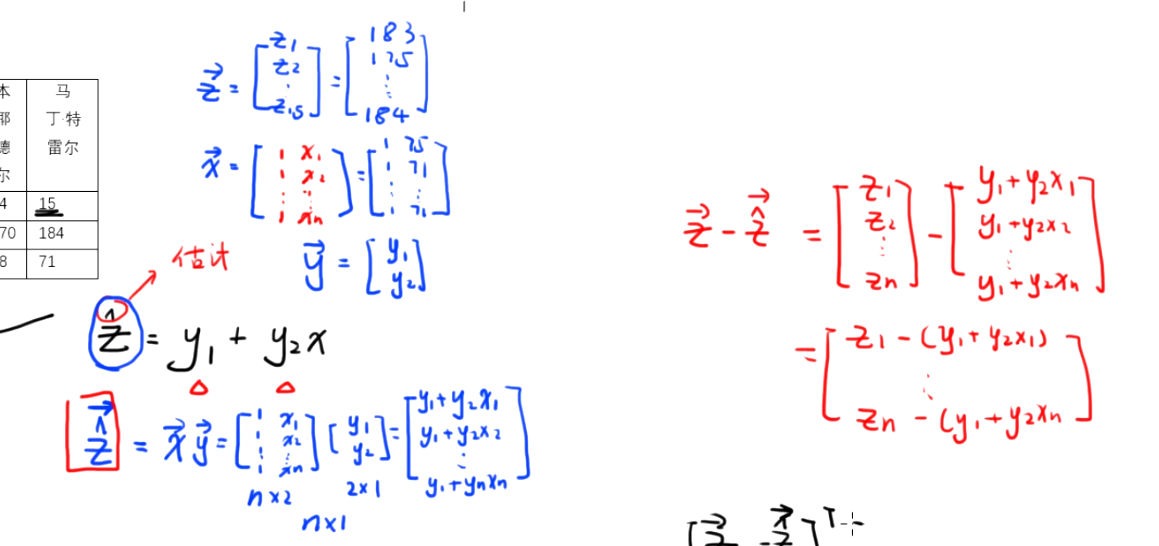 本 马
耶 丁·特
德 雷尔
尔
4 15
70 184
8 71
z⃗ = [z₁ z₂ ⋮ z₁₅] = [183 175 ⋮ 184]
x⃗ = [1 x₁; 1 x₂; ⋮ ⋮; 1 xₙ] = [1 75; 1 71; ⋮ ⋮; 1 71]
y⃗ = [y₁ y₂]
估计
ẑ = y₁ + y₂x
△ △
ẑ⃗ = x⃗ y⃗ = [1 x₁; 1 x₂; ⋮ ⋮; 1 xₙ] [y₁ y₂] = [y₁+y₂x₁ y₁+y₂x₂ ⋮ y₁+yₙxₙ]
n×2 2×1
n×1
z⃗ - ẑ⃗ = [z₁ z₂ ⋮ zₙ] - [y₁+y₂x₁ y₁+y₂x₂ ⋮ y₁+y₂xₙ]
= [z₁-(y₁+y₂x₁) ⋮ zₙ-(y₁+y₂xₙ)]